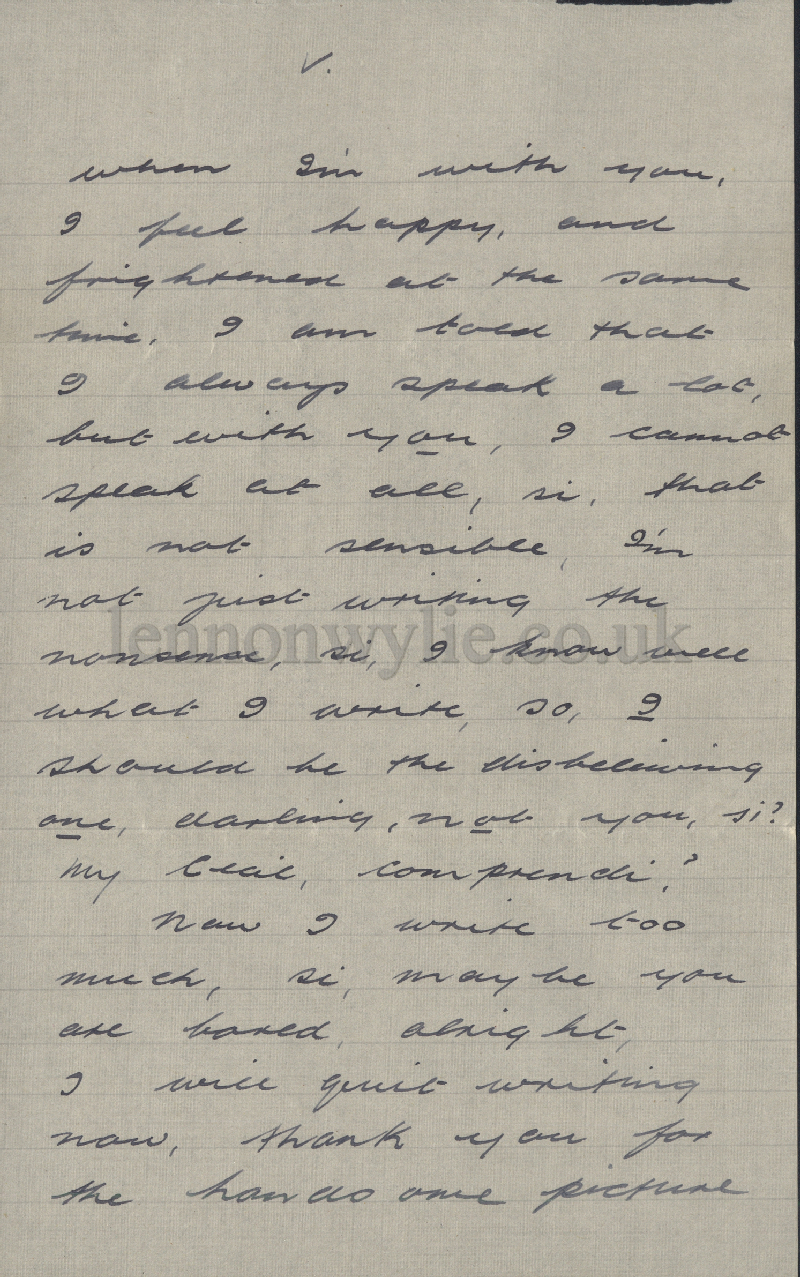 V.
when I'm with you,
I feel happy, and
frightened at the same
time, I am told that
I always speak a lot,
but with you, I cannot
speak at all, si, that
is not sensible, I'm
not just writing the
nonsense, si, I know well
what I write, so, I
should be the disbelieving
one, darling, not you, si?
My Cecil, comprendi?
Now I write too
much, si, maybe you
are bored, alright,
I will quit writing
now, thank you for
the handsome picture
lennonwylie.co.uk